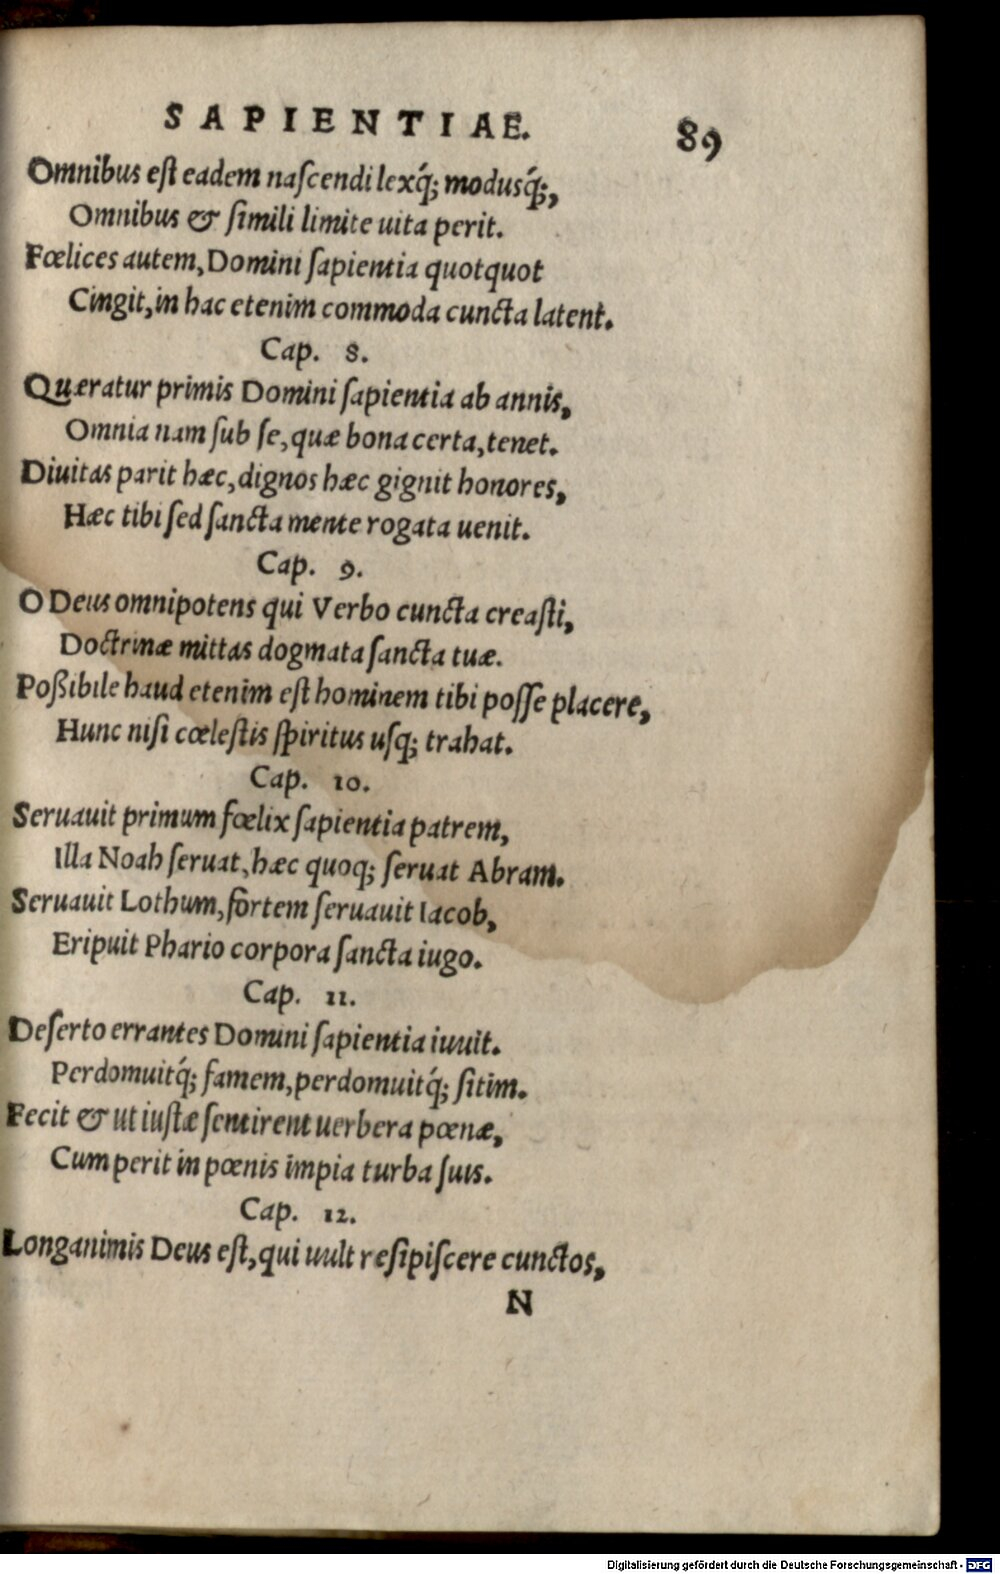 SAPIENTIAE. 89
Omnibus eſt eadem naſcendi lexq́; modusq́;,
Omnibus & ſimili limite uita perit.
Fœlices autem, Domini ſapientia quotquot
Cingit, in hac etenim commoda cuncta latent.
Cap. 8.
Quæratur primis Domini ſapientia ab annis,
Omnia nam ſub ſe, quæ bona certa, tenet.
Diuitas parit hæc, dignos hæc gignit honores,
Hæc tibi ſed ſancta mente rogata uenit.
Cap. 9.
O Deus omnipotens qui Verbo cuncta creaſti,
Doctrinæ mittas dogmata ſancta tuæ.
Poßibile haud etenim eſt hominem tibi poſſe placere,
Hunc niſi cœleſtis ſpiritus uſq; trahat.
Cap. 10.
Seruauit primum fœlix ſapientia patrem,
Illa Noah ſeruat, hæc quoq; ſeruat Abram.
Seruauit Lothum, fortem ſeruauit Iacob,
Eripuit Phario corpora ſancta iugo.
Cap. 11.
Deſerto errantes Domini ſapientia iuuit.
Perdomuitq́; famem, perdomuitq́; ſitim.
Fecit & ut iuſtæ ſentirent uerbera pœnæ,
Cum perit in pœnis impia turba ſuis.
Cap. 12.
Longanimis Deus eſt, qui uult reſipiſcere cunctos,
N
Digitalisierung gefördert durch die Deutsche Forschungsgemeinschaft - DFG